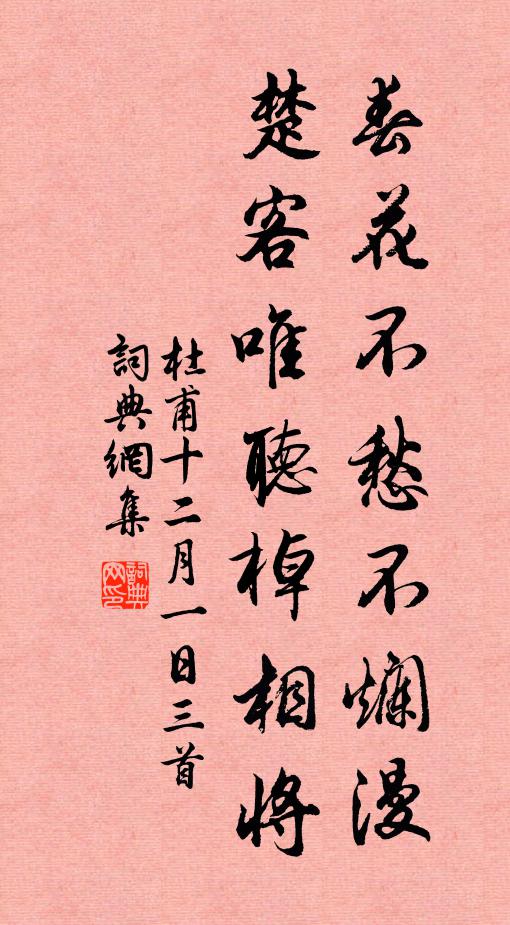 春花不愁不爛漫
楚客唯聽棹相將
杜甫十二月一日三首
詞典網集
詞典網印